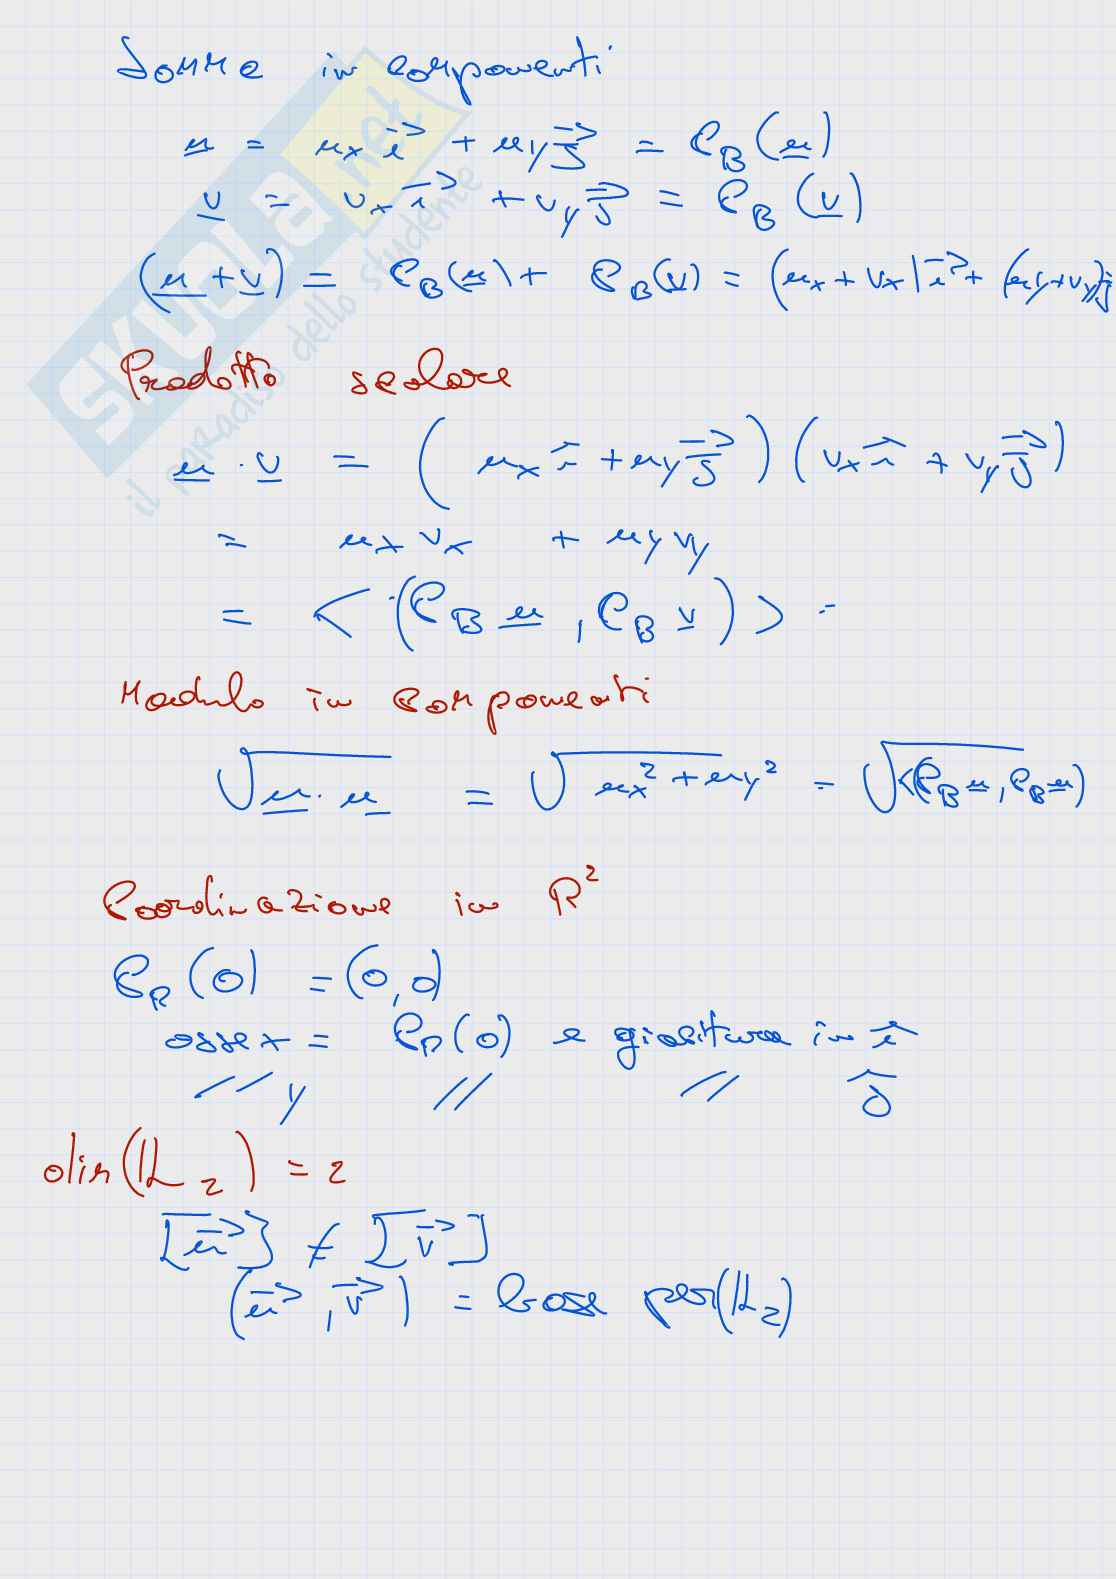 Somma in componenti
u = ux i + uy j = CB(u)
v = vx i + vy j = CB(v)
(u + v) = CB(u) + CB(v) = (ux + vx) i + (uy + vy) j
Prodotto scalare
u · v = (ux i + uy j)(vx i + vy j)
= ux vx + uy vy
= <(CB u, CB v)> =
Modulo in componenti
√u · u = √ux² + uy² = √<(CB u, CB u)
Coordinazione in R²
CR(0) = (0, 0)
asse x = CR(0) e giacitura in i
// y // // j
dim(𝕃2) = 2
[u] ≠ [v]
(u, v) = base per(𝕃2)
SKUOLA.net
il paradiso dello studente